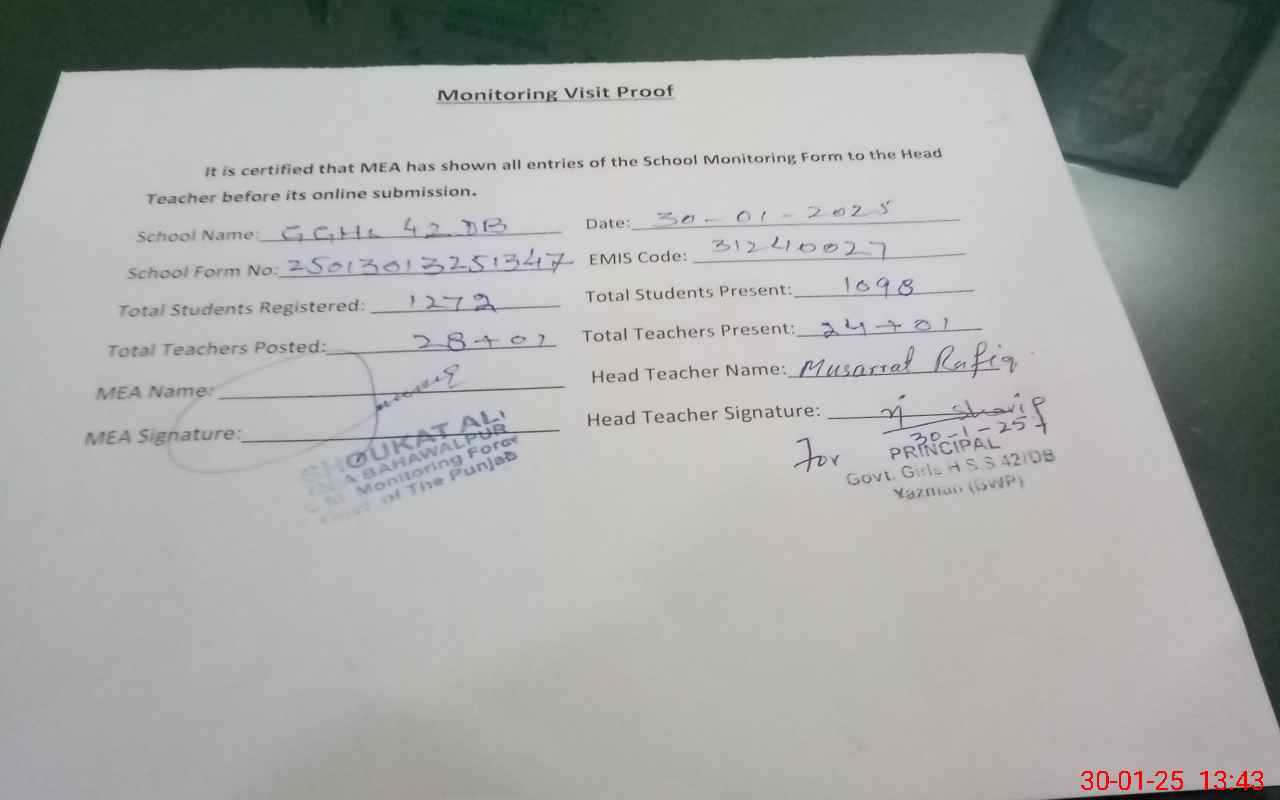 Monitoring Visit Proof
It is certified that MEA has shown all entries of the School Monitoring Form to the Head
Teacher before its online submission.
School Name: GGHs 42 DB Date: 30-01-2025
School Form No: 25013013251347 EMIS Code: 31240027
Total Students Registered: 1272 Total Students Present: 1098
Total Teachers Posted: 28+01 Total Teachers Present: 24+01
MEA Name: Head Teacher Name: Musarrat Rafiq
MEA Signature: Head Teacher Signature: sharif
30-1-25
SHOUKAT ALI
BAHAWALPUR
Monitoring Force
of The Punjab
For PRINCIPAL
Govt. Girls H.S.S 42/DB
Yazman (BWP)
30-01-25 13:43